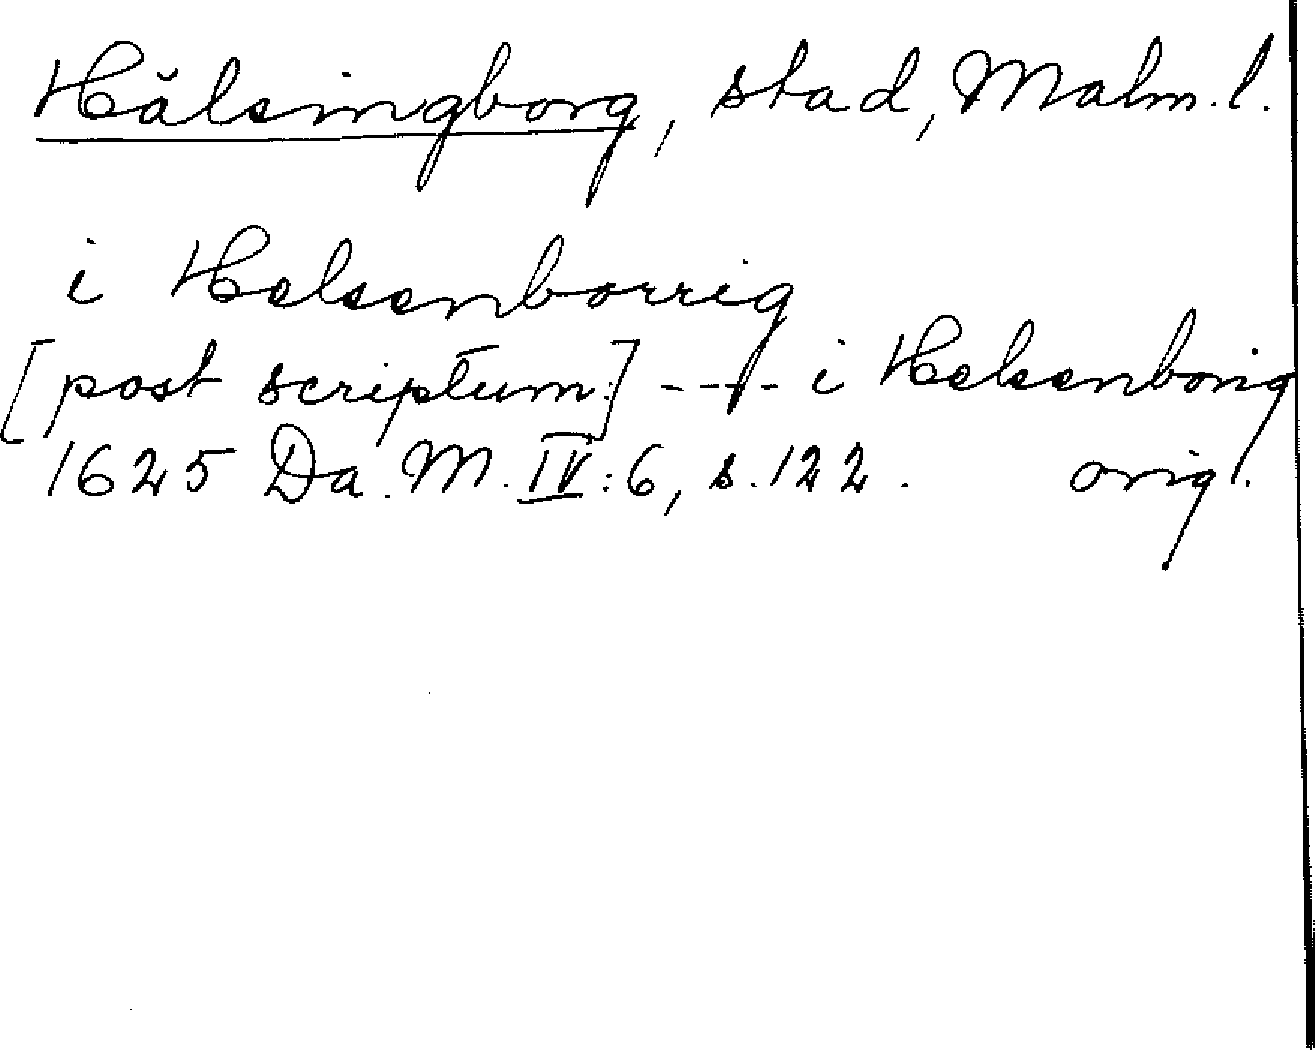 Hälsingborg, stad, Malm. l.
i Helsenborrig
[post scriptum:] ---- i Helsenborig
1625 Da. M. IV:6, s. 122. orig.